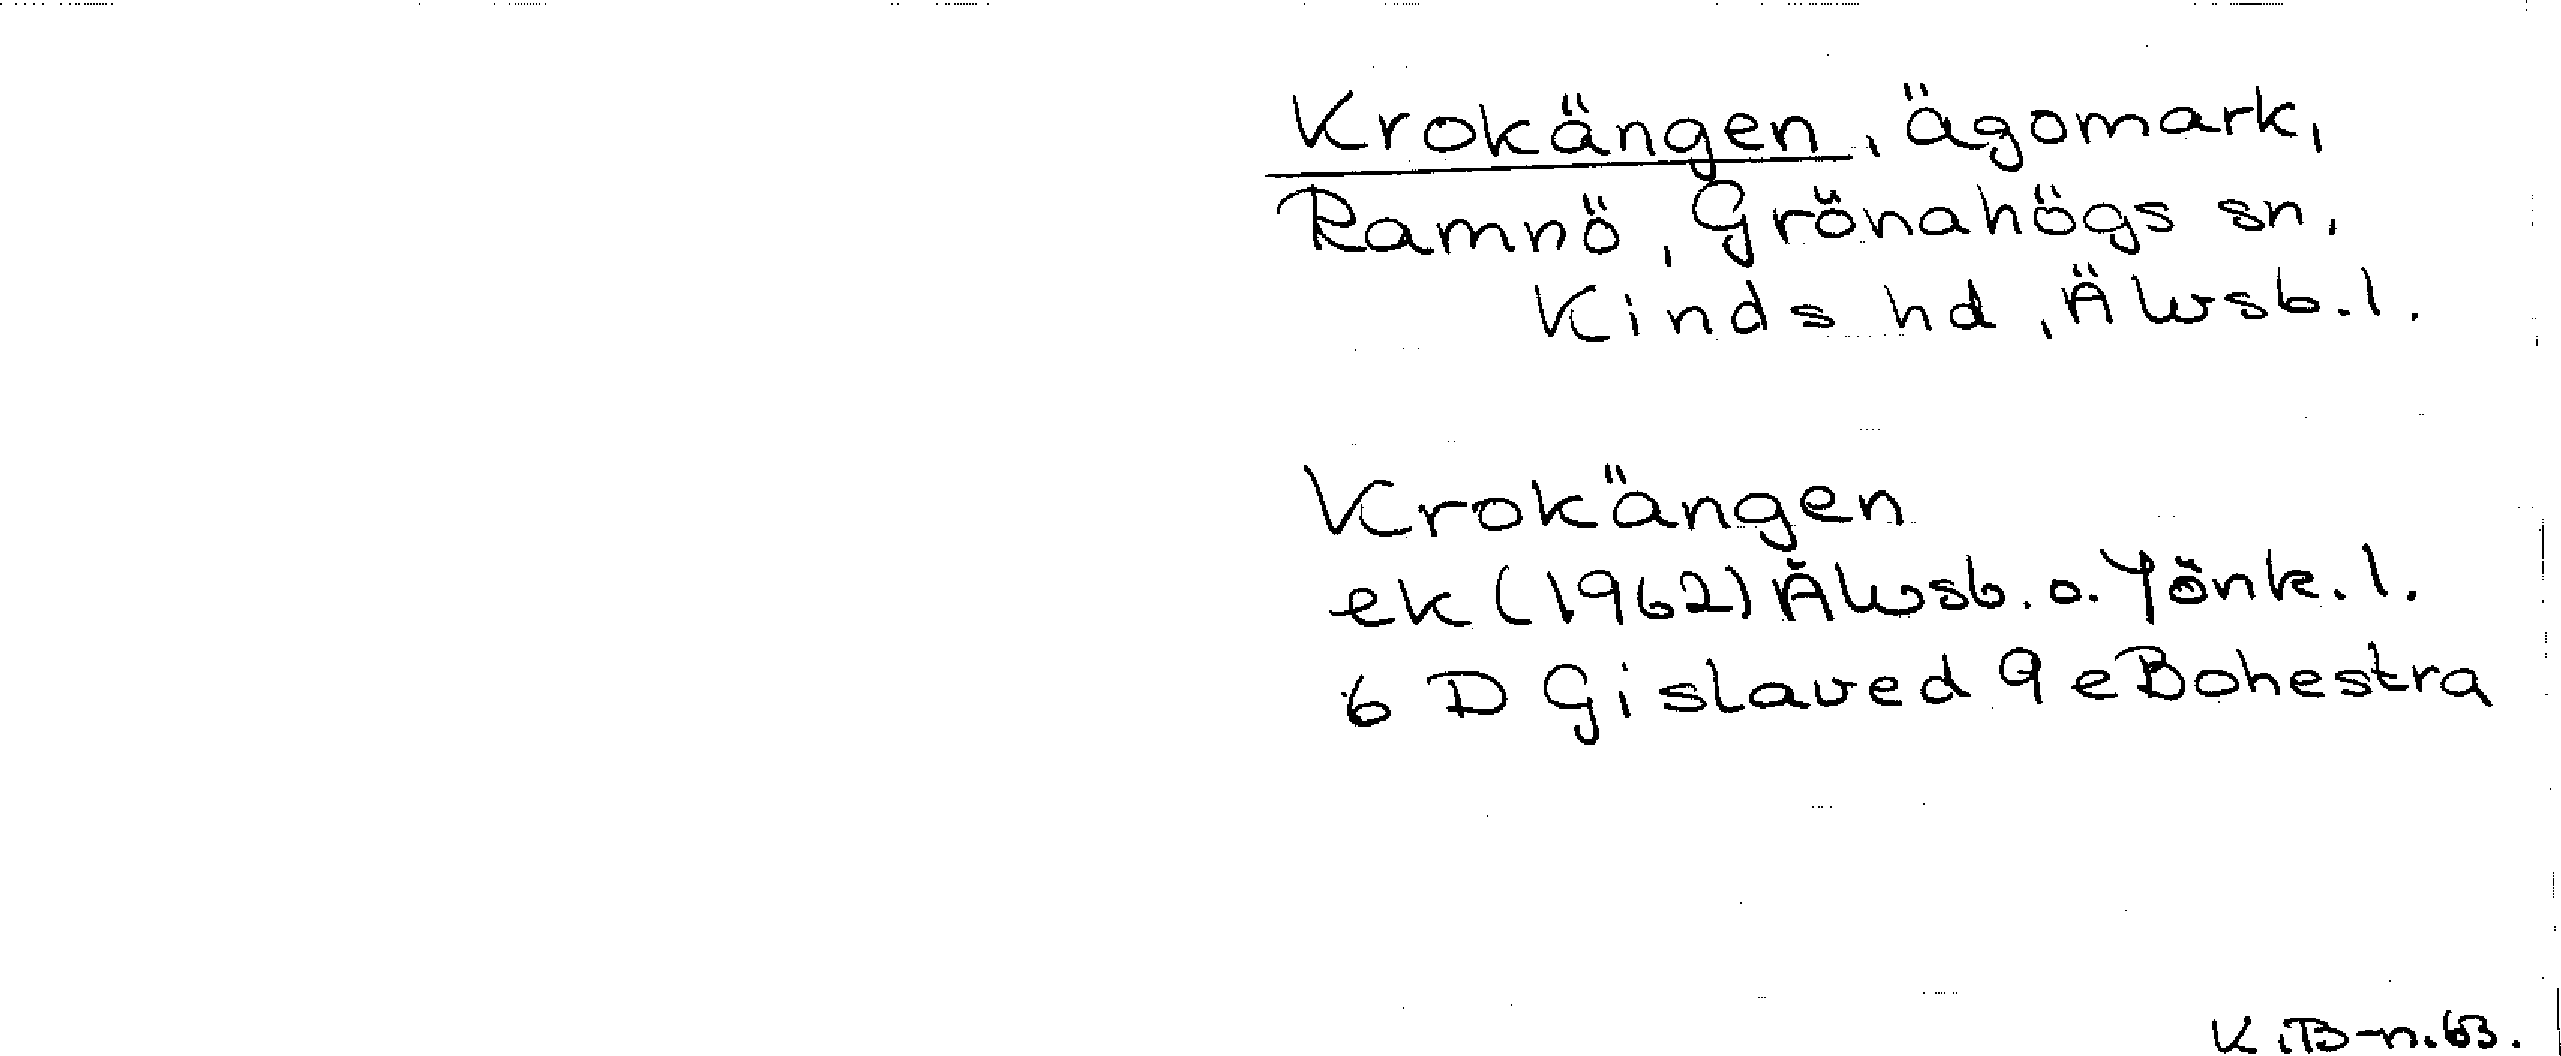 Krokängen, ägomark,
Ramnö, Grönahögs sn,
Kinds hd, Älvsb.l.
Krokängen
ek (1962) Älvsb. o. Jönk. l.
6 D Gislaved 9 e Bohestra
K.B-n.63.